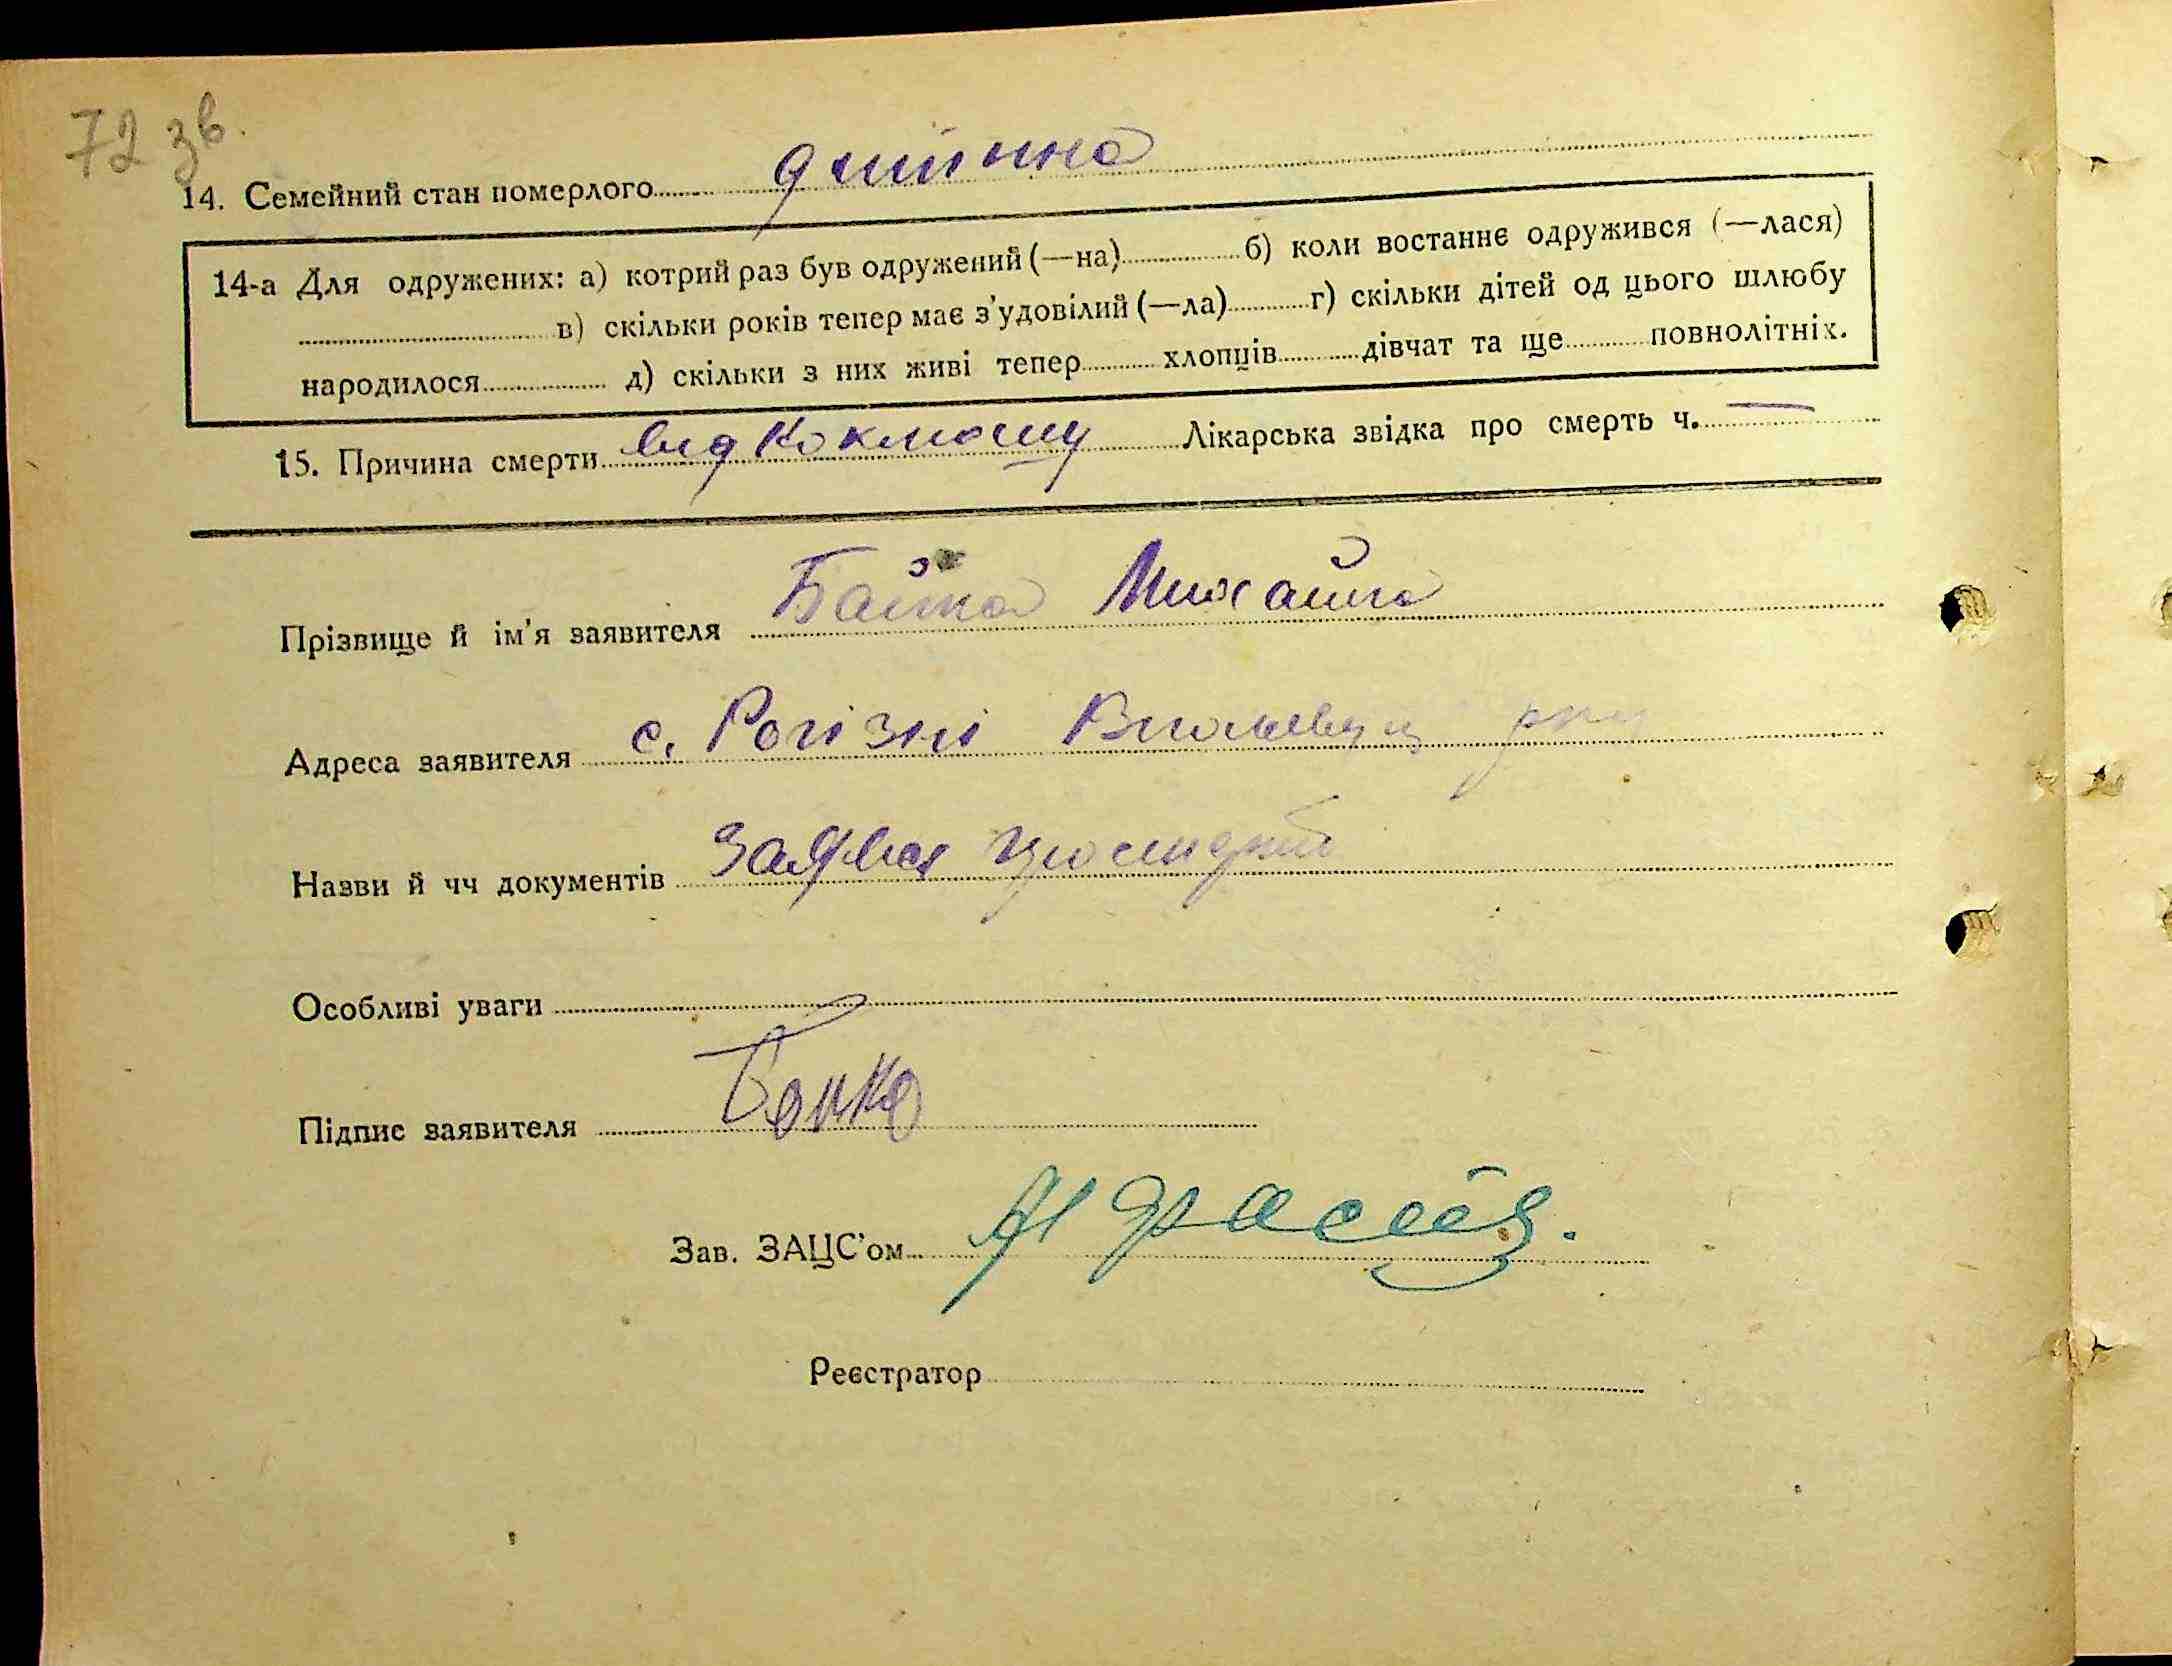 72 зв.
14. Семейний стан померлого дитина
14-а Для одружених: а) котрий раз був одружений (—на) б) коли востаннє одружився (—лася)
в) скільки років тепер має з’удовілий (—ла) г) скільки дітей од цього шлюбу
народилося д) скільки з них живі тепер хлопців дівчат та ще повнолітніх.
15. Причина смерти від Коклюшу Лікарська звідка про смерть ч. —
Прізвище й ім’я заявителя Михайло
Адреса заявителя с. Рогізні
Назви й чч документів Заява
Особливі уваги
Підпис заявителя
Зав. ЗАЦС’ом
Реєстратор